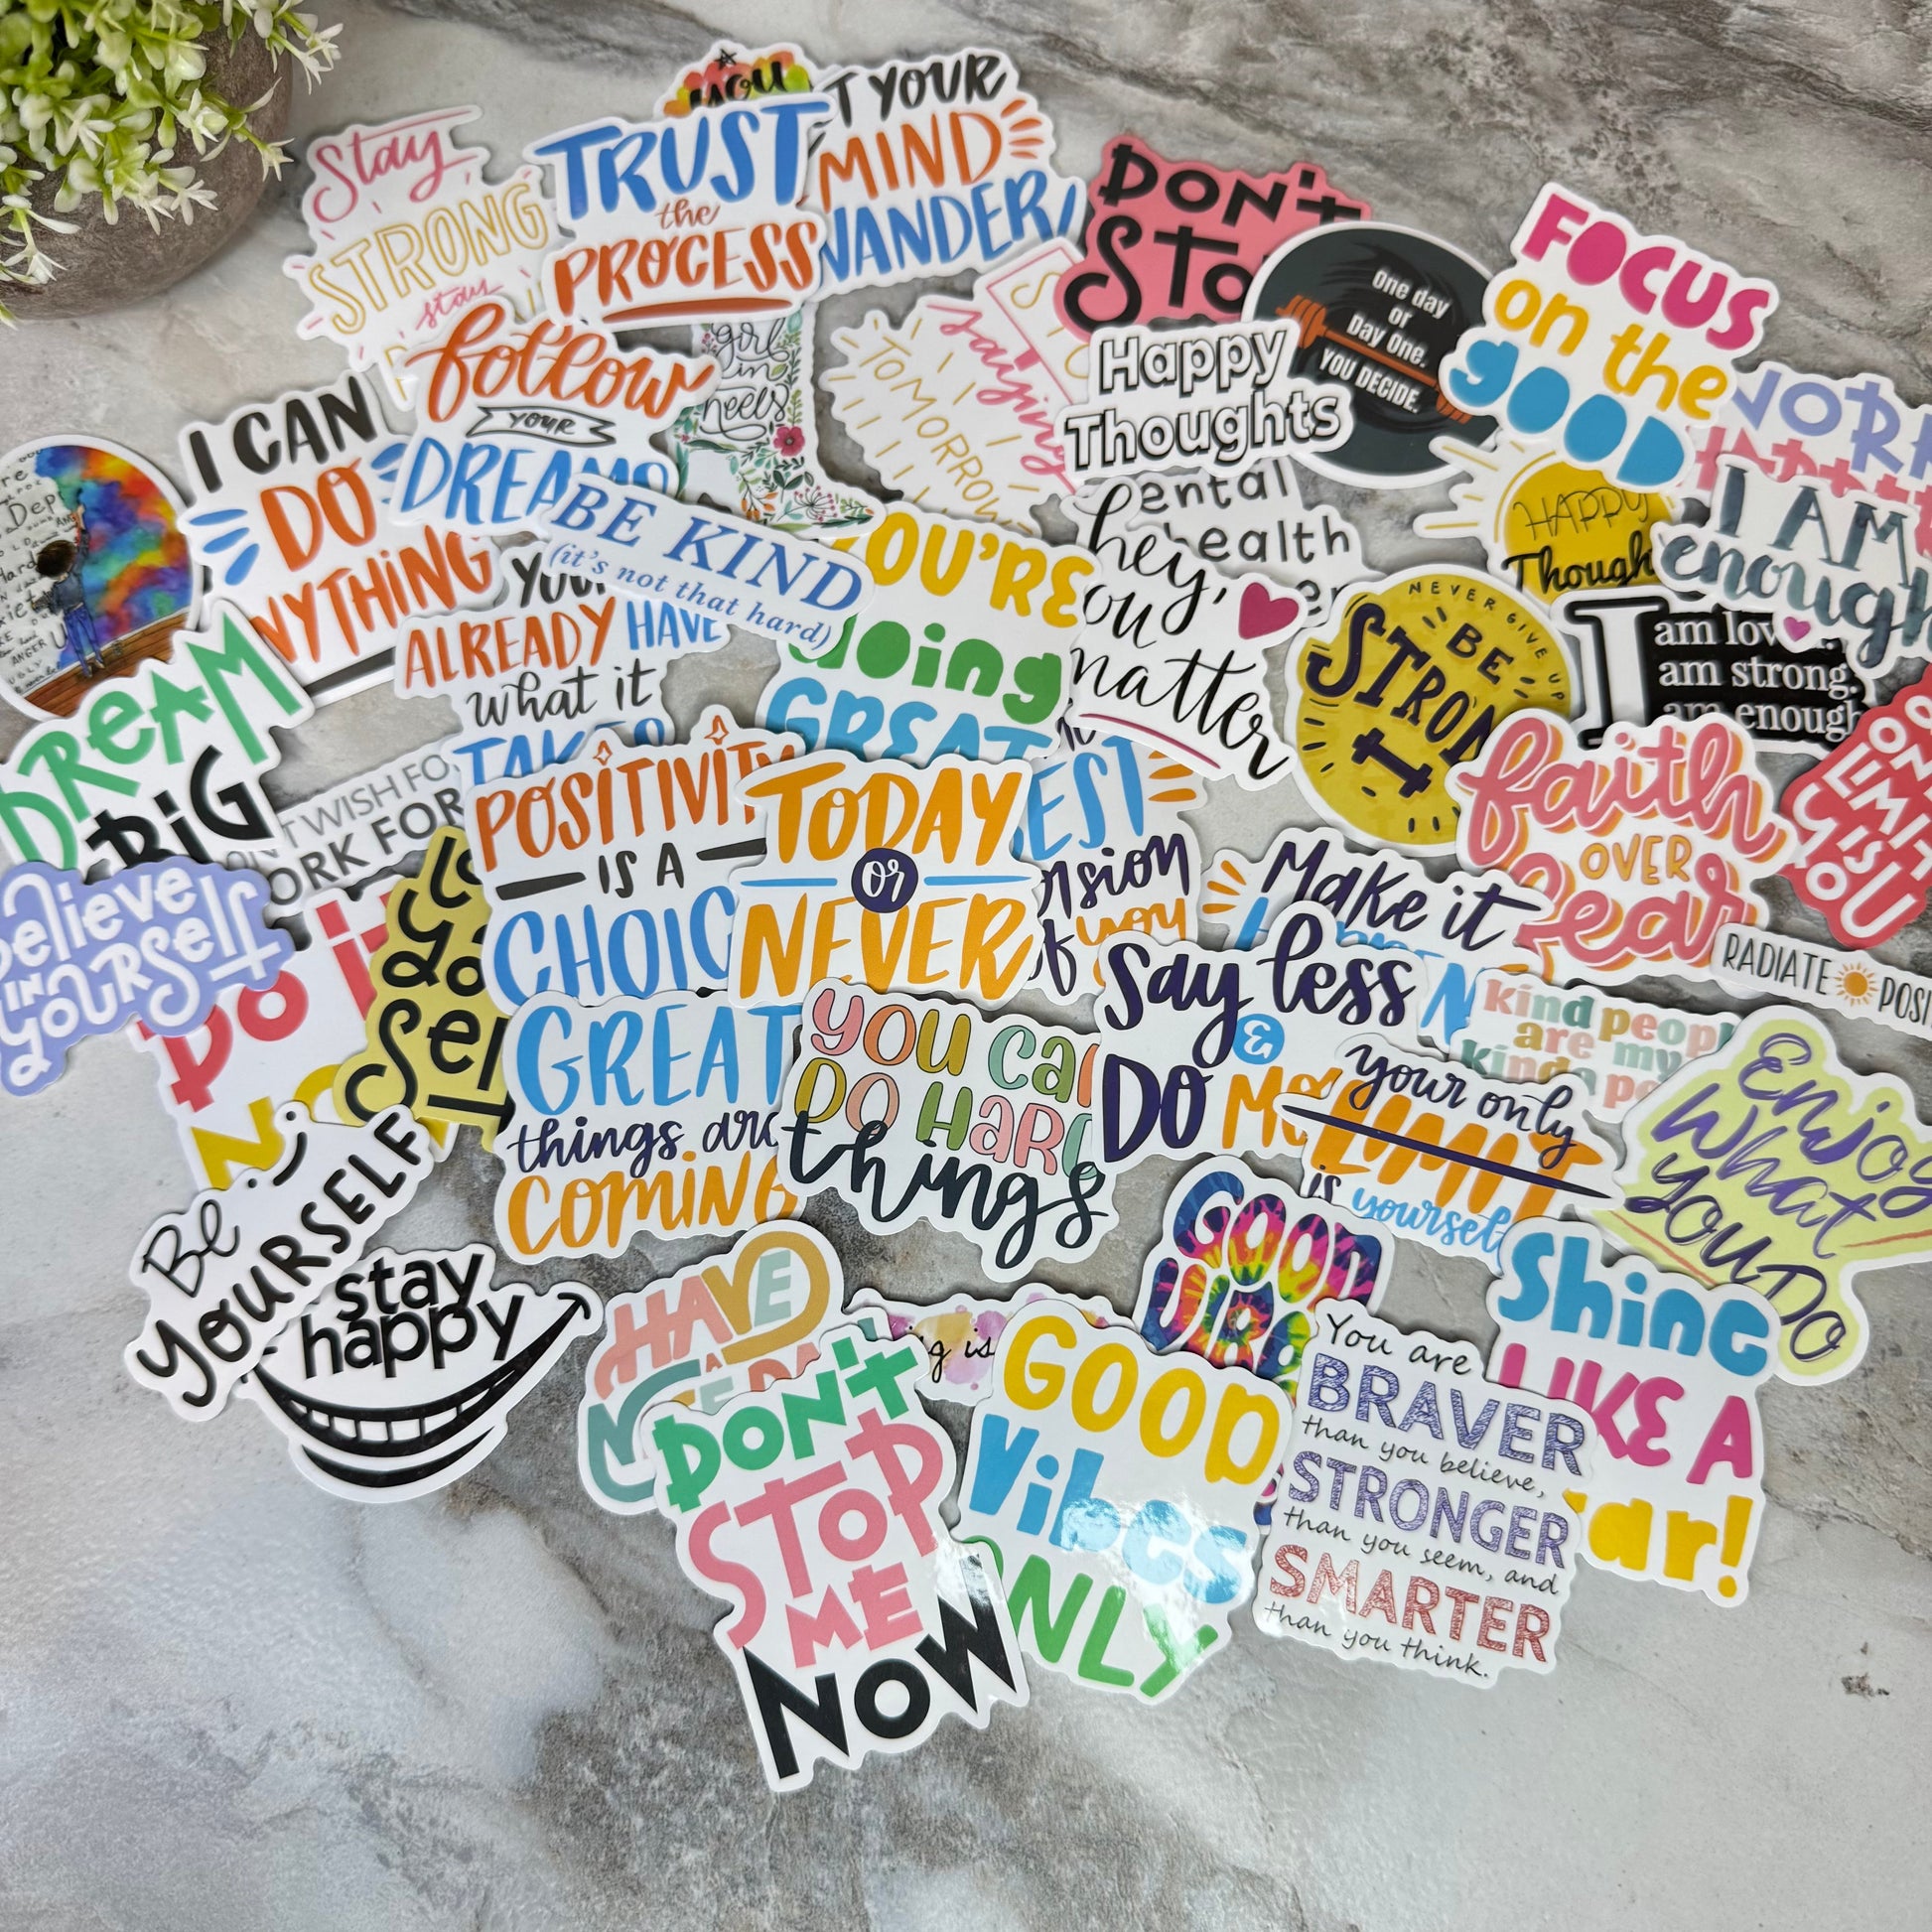 you
Stay
STRONG
stay
TRUST
the
PROCESS
T YOUR
MIND
WANDER!
DON'T
STO
One day
or
Day One.
YOU DECIDE.
FOCUS
on the
gOOD
WORK
HAPPY
Thoughts
I AM
enough
I am lov
am strong.
am enough
follow
YOUR
DREAMS
girl
in
heels
STOP
saying
TOMORROW
Happy
Thoughts
ental
health
I CAN
DO
ANYTHING
BE KIND
(it's not that hard)
YOU
ALREADY HAVE
what it
TAKES
YOU'RE
doing
GREAT
hey,
you
matter
NEVER GIVE UP
BE
STRONG
faith
OVER
fear
DREAM
BIG
N'T WISH FO
WORK FOR
POSITIVITY
IS A
CHOIC
TODAY
OR
NEVER
EST
rsion
of you
Make it
HAPPEN
RADIATE POSI
believe
IN
YOURSELF
DO IT
NO
Sel
GREAT
things are
COMING
YOU CAN
DO HARD
things
Say less
&
DO MO
kind people
are my
kinda pe
your only
LIMIT
is yourself
Enjoy
What
YOU DO
Be
YOURSELF
stay
happy
HAVE
A
NICE DA
g is
GOOD
VIBE
DON'T
STOP
ME
NOW
GOOD
Vibes
ONLY
You are
BRAVER
than you believe,
STRONGER
than you seem, and
SMARTER
than you think.
Shine
LIKE A
ar!